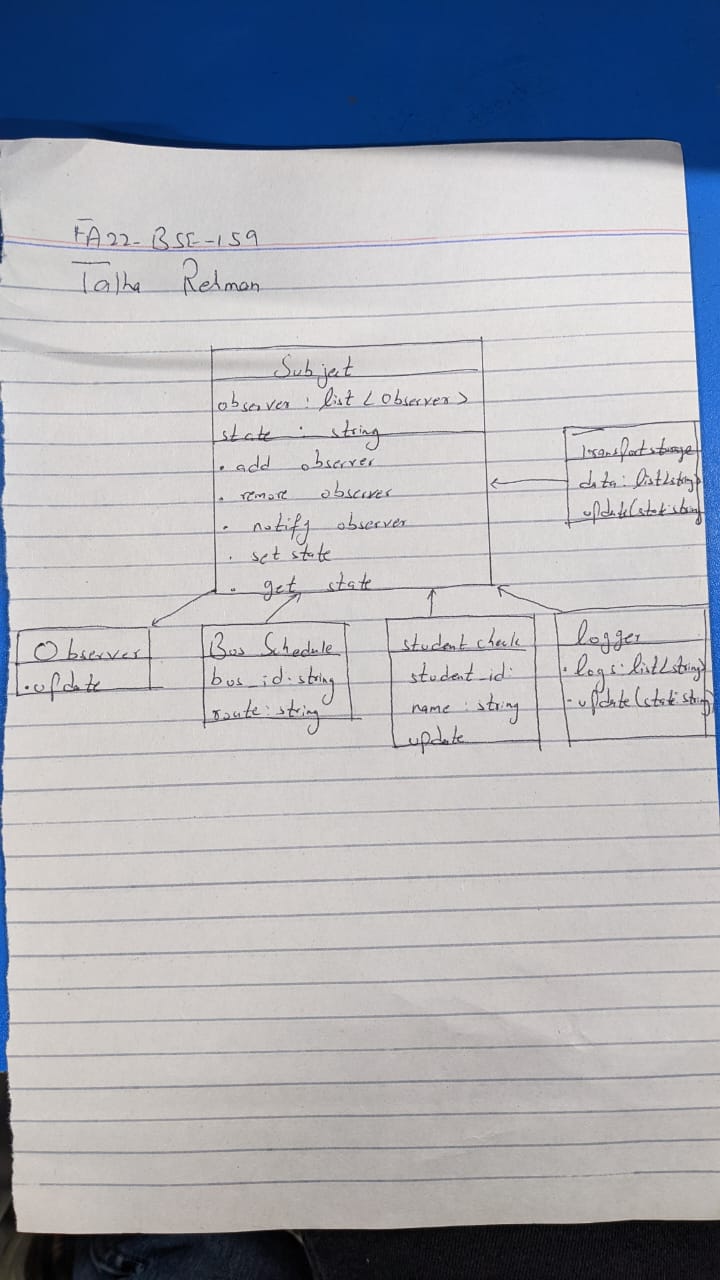 FA22-BSE-159
Talha Rehman
Subject
observer : list <Observer>
state : string
. add observer
. remove observer
. notify observer
. set state
. get state
Transport storage
data : list<string>
update(stat:string
Observer
. update
Bus Schedule
bus_id : string
route : string
student check
student_id :
name : string
update
logger
. logs : list<string>
- update(stat:string)